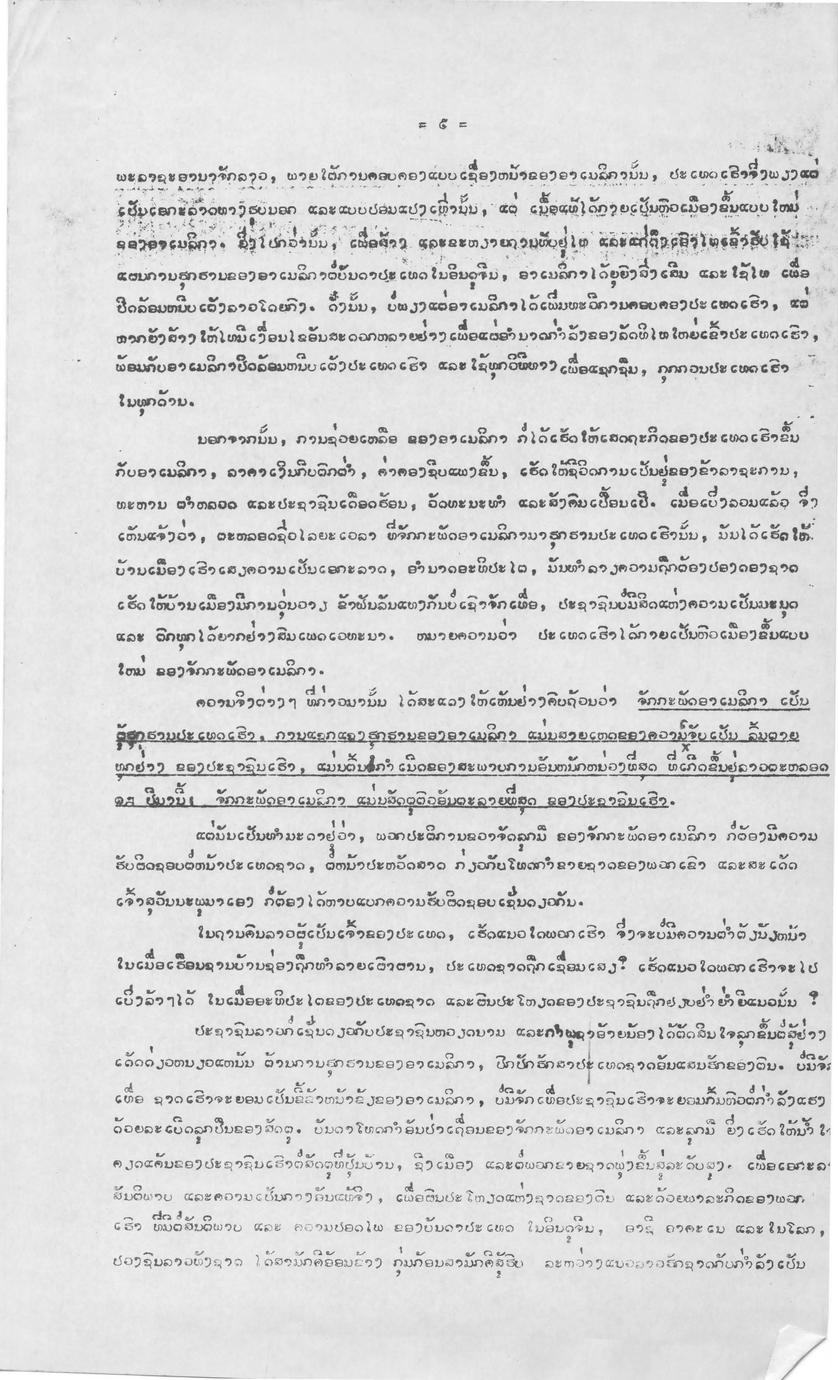 = ໕ =
ພະລາຊະອານາຈັກລາວ, ພາຍໃຕ້ການຄອບຄອງແບບເຊື່ອງຫນ້າຂອງອາເມລິການັ້ນ, ປະເທດເຮົາຈຶ່ງພຽງແຕ່
ເປັນເອກະລາດທາງຮູບນອກ ແລະແບບປອມແປງເທົ່ານັ້ນ, ແຕ່ ເນື້ອແທ້ໄດ້ກາຍເປັນຫົວເມືອງຂຶ້ນແບບໃຫມ່
ຂອງອາເມລິກາ. ຍິ່ງໄປກວ່ານັ້ນ, ເພື່ອສ້າງ ແລະຂະຫຍາຍຖານທັບຢູ່ໄທ ແລະ ໄທເຂົ້າຮັບໃຊ້
ແຜນການຮຸກຮານຂອງອາເມລິກາຕໍ່ບັນດາປະເທດໃນອິນດູຈີນ, ອາເມລິກາໄດ້ຍຸຍົງສົ່ງເສີມ ແລະໃຊ້ໄທ ເພື່ອ
ປິດລ້ອມຫນີບເຕັງລາວໂດຍກົງ. ດັ່ງນັ້ນ, ບໍ່ພຽງແຕ່ອາເມລິກາໄດ້ເພີ່ມທະວີການຄອບຄອງປະເທດເຮົາ, ແຕ່
ຫາກຍັງສ້າງໃຫ້ໄທມີເງື່ອນໄຂອັນສະດວກຫລາຍຢ່າງເພື່ອແຜ່ອຳນາດກຳລັງຂອງລັດທິໄທໃຫຍ່ເຂົ້າປະເທດເຮົາ,
ພ້ອມກັບອາເມລິກາປິດລ້ອມຫນີບເຕັງປະເທດເຮົາ ແລະ ໃຊ້ທຸກວິທີທາງເພື່ອແຊກຊຶມ, ກຸກກວນປະເທດເຮົາ
ໃນທຸກດ້ານ.
ນອກຈາກນັ້ນ, ການຊ່ອຍເຫລືອ ຂອງອາເມລິກາ ກໍ່ໄດ້ເຮັດໃຫ້ເສດຖະກິດຂອງປະເທດເຮົາຂຶ້ນ
ກັບອາເມລິກາ, ລາຄາເງິນກີບຕົກຕ່ຳ, ຄ່າຄອງຊີບແພງຂຶ້ນ, ເຮັດໃຫ້ຊີວິດການເປັນຢູ່ຂອງຂ້າລາຊະການ,
ທະຫານ ຕຳຫລວດ ແລະປະຊາຊົນເດືອດຮ້ອນ, ວັດທະນະທຳ ແລະສັງຄົມເປື້ອນເປິ. ເມື່ອເບິ່ງລວມແລ້ວ ຈຶ່ງ
ເຫັນແຈ້ງວ່າ, ຕະຫລອດຊົ່ວໄລຍະເວລາ ທີ່ຈັກກະພັດອາເມລິກາມາຮຸກຮານປະເທດເຮົານັ້ນ, ມັນໄດ້ເຮັດໃຫ້
ບ້ານເມືອງເຮົາເສຽຄວາມເປັນເອກະລາດ, ອຳນາດອະທິປະໄຕ, ມັນທຳລາງຄວາມຖືກຕ້ອງປອງດອງຊາດ
ເຮັດໃຫ້ບ້ານເມືອງມີການວຸ່ນວາຽ ຂ້າຟັນລັນແທງກັນບໍ່ເຊົາຈັກເທື່ອ, ປະຊາຊົນບໍ່ມີສິດແຫ່ງຄວາມເປັນມະນຸດ
ແລະ ຕົກທຸກໄດ້ຍາກຢ່າງສົມເພດເວທະນາ. ຫມາຍຄວາມວ່າ ປະເທດເຮົາໄດ້ກາຍເປັນຫົວເມືອງຂຶ້ນແບບ
ໃຫມ່ ຂອງຈັກກະພັດອາເມລິກາ.
ຄວາມຈິງຕ່າງໆ ທີ່ກ່າວມານັ້ນ ໄດ້ສະແດງໃຫ້ເຫັນຢ່າງຄົບຖ້ວນວ່າ ຈັກກະພັດອາເມລິກາ ເປັນ
ຜູ້ຮຸກຮານປະເທດເຮົາ. ການແຊກແຊງຮຸກຮານຂອງອາເມລິກາ ແມ່ນສາຍເຫດຂອງຄວາມຈົບເປັນ ລົ້ມຕາຍ
ທຸກຢ່າງ ຂອງປະຊາຊົນເຮົາ, ແມ່ນຕົ້ນກຳເນີດຂອງສະພາບການອັນຫນັກຫນ່ວງທີ່ສຸດ ທີ່ເກີດຂຶ້ນຢູ່ລາວຕະຫລອດ
໑໘ ປີມານີ້; ຈັກກະພັດອາເມລິກາ ແມ່ນສັດຕູຕົວອັນຕະລາຍທີ່ສຸດ ຂອງປະຊາຊົນເຮົາ.
ແຕ່ມັນເປັນທຳມະດາຢູ່ວ່າ, ພວກປະຕິການຂວາຈັດລູກມື ຂອງຈັກກະພັດອາເມລິກາ ກໍ່ຕ້ອງມີຄວາມ
ຮັບຜິດຊອບຕໍ່ຫນ້າປະເທດຊາດ, ຕໍ່ຫນ້າປະຫວັດສາດ ກ່ຽວກັບໂທດກຳຂາຍຊາດຂອງພວກເຂົາ ແລະສະເດັດ
ເຈົ້າສຸວັນນະພູມາເອງ ກໍ່ຕ້ອງໄດ້ຫາບແບກຄວາມຮັບຜິດຊອບເຊັ່ນດຽວກັນ.
ໃນຖານຄົນລາວຜູ້ເປັນເຈົ້າຂອງປະເທດ, ເຮັດແນວໃດພວກເຮົາ ຈຶ່ງຈະບໍ່ມີຄວາມຕ່ຳຕ້ອຽນ້ຽຫນ້າ
ໃນເມື່ອເຮືອນຊານບ້ານຊ່ອງຖືກທຳລາຍເຜົາຜານ, ປະເທດຊາດຖືກເຊື່ອມເສຽ? ເຮັດແນວໃດພວກເຮົາຈະໄປ
ເບິ່ງລ້າໆໄດ້ ໃນເມື່ອອະທິປະໄຕຂອງປະເທດຊາດ ແລະຜົນປະໂຫຽດຂອງປະຊາຊົນຖືກຢຽບຢ່ຳຢ່ຳຍີແນວນັ້ນ ?
ປະຊາຊົນລາວກໍ່ເຊັ່ນດຽວກັບປະຊາຊົນຫວຽດນາມ ແລະກຳພູຊາອ້າຍນ້ອງໄດ້ຕັດສິນໃຈລຸກຂຶ້ນຕໍ່ສູ້ຢ່າງ
ເດັດດ່ຽວຫນຽວແຫນ້ນ ຕ້ານການຮຸກຮານຂອງອາເມລິກາ, ປົກປັກຮັກສາປະເທດຊາດອັນແສນຮັກຂອງຕົນ. ບໍ່ມີຈັກ
ເທື່ອ ຊາດເຮົາຈະຍອມເປັນຂີ້ຂ້າຫນ້າຂ້ຽງຂອງອາເມລິກາ, ບໍ່ມີຈັກເທື່ອປະຊາຊົນເຮົາຈະຍອມກົ້ມຫົວຕໍ່ກຳລັງແຮງ
ດ້ວຍລະເບີດລູກປືນຂອງສັດຕູ. ບັນດາໂທດກຳອັນປ່າເຖື່ອນຂອງຈັກກະພັດອາເມລິກາ ແລະລູກມື ຍິ່ງເຮັດໃຫ້ນ້ຳໃ
ຄຽດແຄ້ນຂອງປະຊາຊົນເຮົາຕໍ່ສັດຕູທີ່ປຸ້ນບ້ານ, ຊີງເມືອງ ແລະຕໍ່ພວກຂາຍຊາດພຸ່ງຂຶ້ນສູ່ລະດັບສູງ. ເພື່ອເອກະລາ
ສັນຕິພາບ ແລະຄວາມເປັນກາງອັນແທ້ຈິງ, ເພື່ອຜົນປະໂຫຽດແຫ່ງຊາດຂອງຕົນ ແລະດ້ວຍພາລະກິດຂອງພວກ
ເຮົາ ທີ່ມີຕໍ່ສັນຕິພາບ ແລະ ຄວາມປອດໄພ ຂອງບັນດາປະເທດ ໃນອິນດູຈີນ, ອາຊີ ອາຄະເນ ແລະໃນໂລກ,
ປວງຊົນລາວທັງຊາດ ໄດ້ສາມັກຄີອ້ອມຂ້າງ ກຸ່ມກ້ອນສາມັກຄີສູ້ຮົບ ລະຫວ່າງແນວລາວຮັກຊາດກັບກຳລັງເປັນ